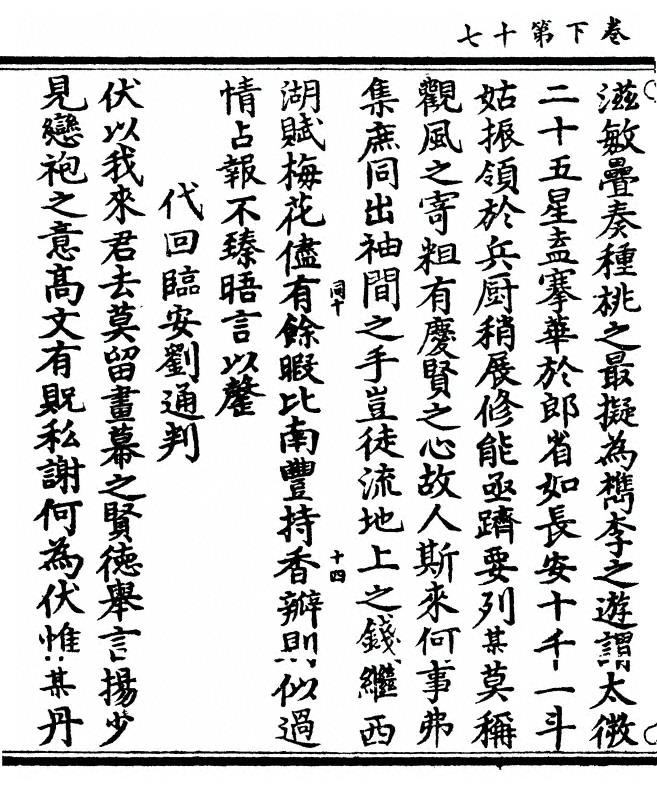 卷下第十七
滋敏疊奏種桃之最擬為檇李之遊謂太微
二十五星盍搴華於郎省如長安十千一斗
姑振領於兵厨稍展修能亟躋要列某莫稱
觀風之寄粗有慶賢之心故人斯來何事弗
集庶同出袖間之手豈徒流地上之錢繼西
湖賦梅花儘有餘暇比南豐持香瓣則似過
同十
十四
情占報不臻晤言以罄
代回臨安劉通判
伏以我來君去莫留畫幕之賢德舉言揚少
見戀袍之意高文有貺私謝何為伏惟某丹